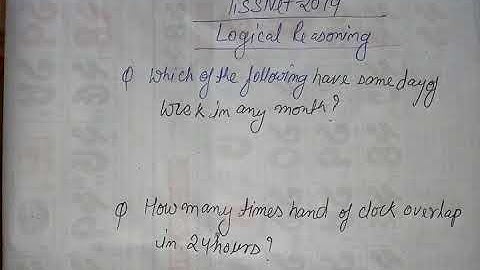 TISSNet 2019
Logical Reasoning
Q Which of the following have same day of
week in any month?
Q How many times hand of clock overlap
in 24 hours?